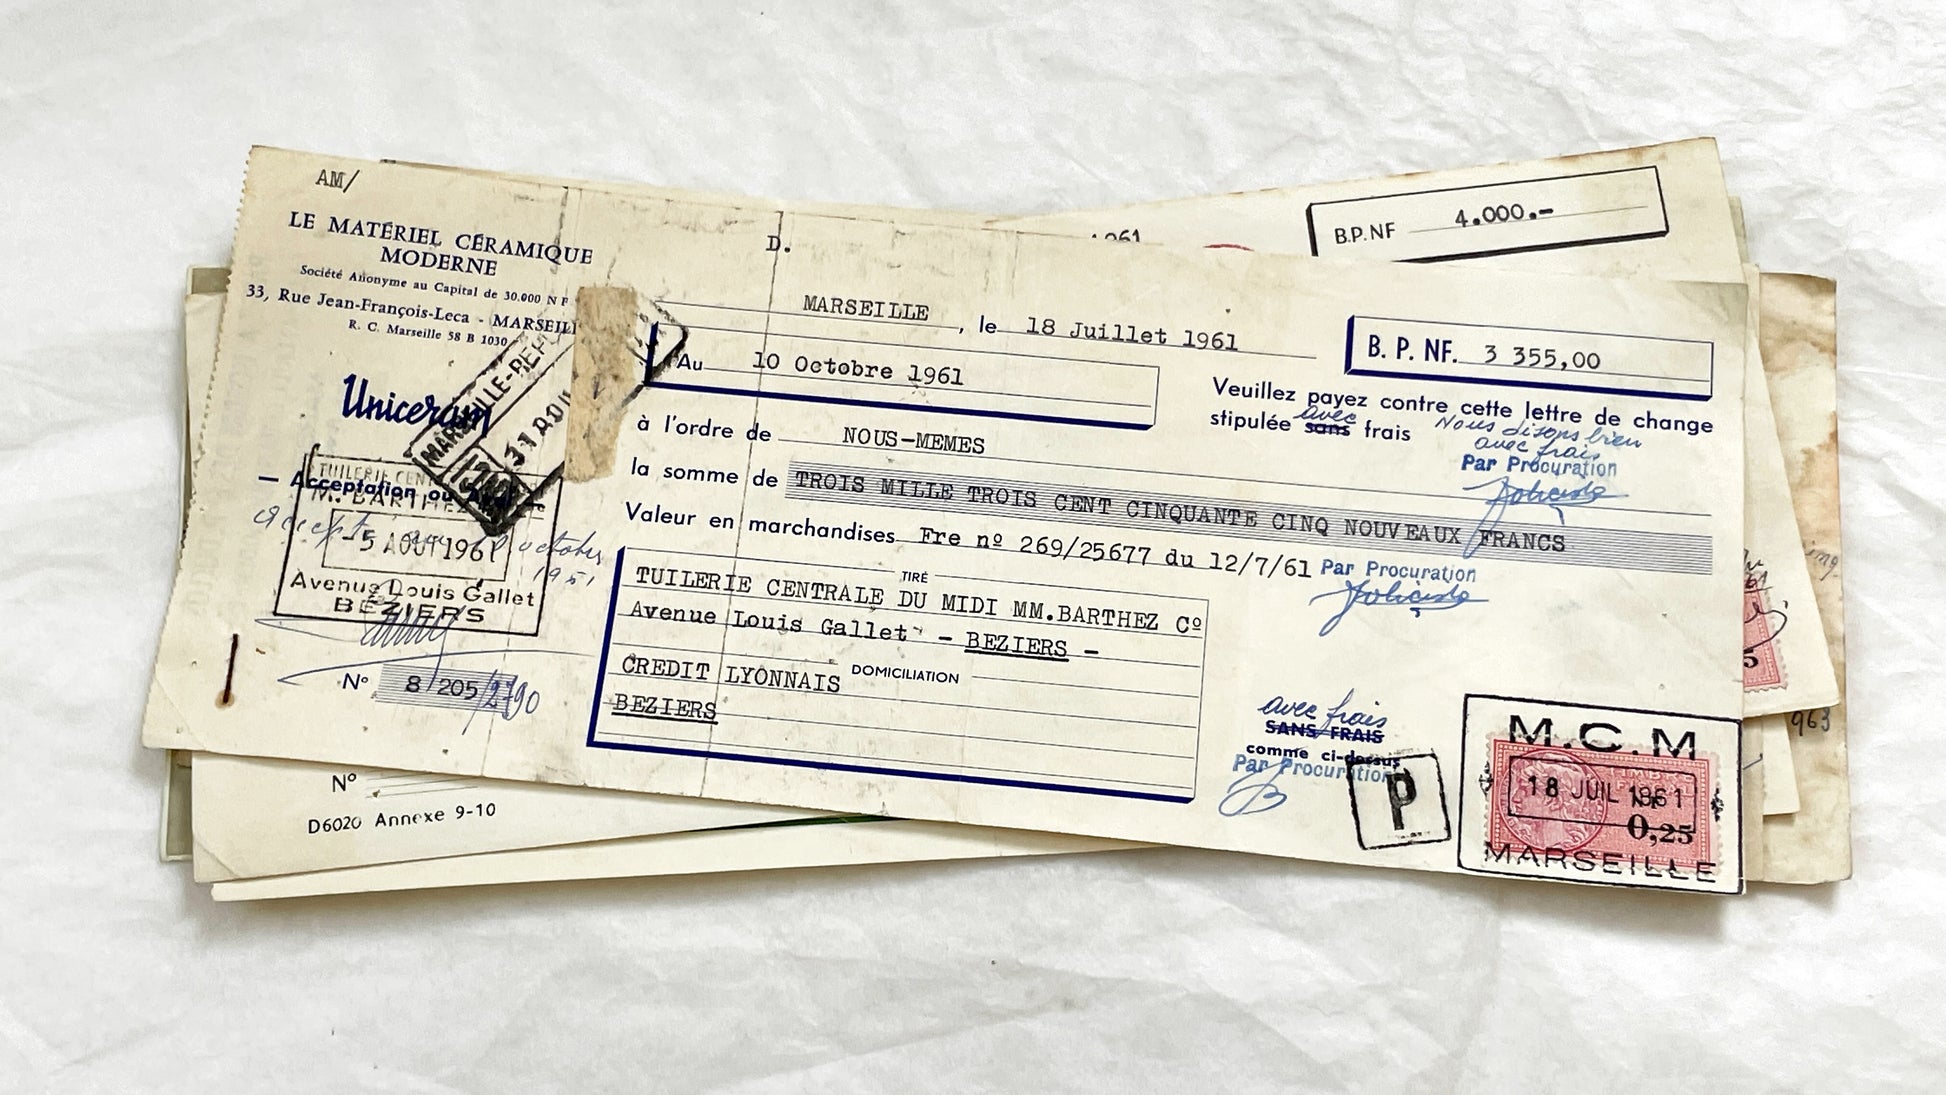 AM/
LE MATÉRIEL CÉRAMIQUE
MODERNE
Société Anonyme au Capital de 30.000 N F
33, Rue Jean-François-Leca - MARSEILL
R. C. Marseille 58 B 1030
Uniceram
MARSEILLE-RÉP
31 AOU
— Acceptation ou
TUILERIE CENT
M. BARTHEZ
-5 AOUT 1961
octobre
Avenue Louis Gallet
BÉZIERS
N° 8/205/2790
D.
MARSEILLE, le 18 Juillet 1961
Au 10 Octobre 1961
B. P. NF. 3 355,00
Veuillez payez contre cette lettre de change
stipulée sans avec frais
Nous disons bien
avec frais
Par Procuration
à l'ordre de NOUS-MEMES
la somme de TROIS MILLE TROIS CENT CINQUANTE CINQ NOUVEAUX FRANCS
Valeur en marchandises Fre nº 269/25677 du 12/7/61
Par Procuration
TIRÉ
TUILERIE CENTRALE DU MIDI MM.BARTHEZ Cº
Avenue Louis Gallet - BEZIERS -
DOMICILIATION
CREDIT LYONNAIS
BEZIERS
avec frais
SANS FRAIS
comme ci-dessus
Par Procuration
P
M.C.M
18 JUIL 1961
0,25
MARSEILLE
B.P.NF 4.000.-
1961
963
N°
D6020 Annexe 9-10